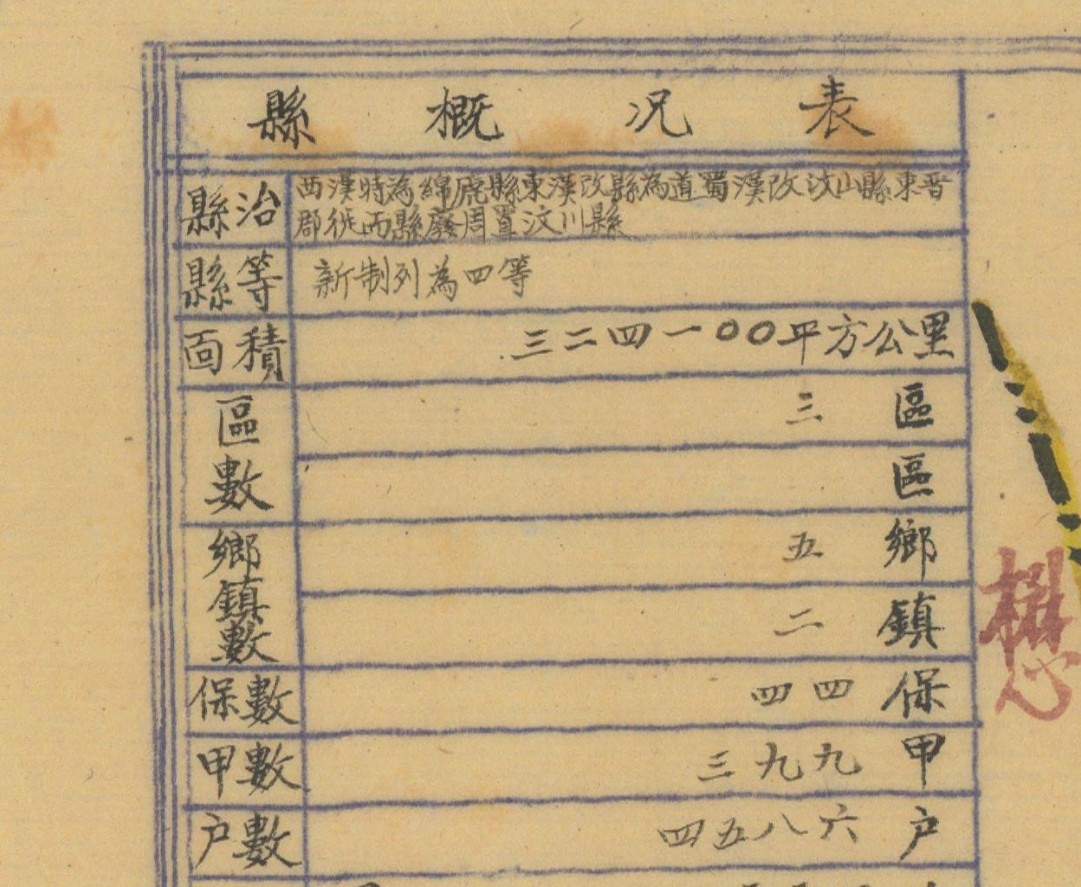 縣概况表
縣治
西漢時為綿虒縣東漢改縣為道蜀漢改汶山縣東晉
郡徙而縣廢周置汶川縣
縣等
新制列為四等
面積
三二四一００平方公里
區數
三 區
區
鄉鎮數
五 鄉
二 鎮
保數
四四 保
甲數
三九九 甲
户數
四五八六 户
懋